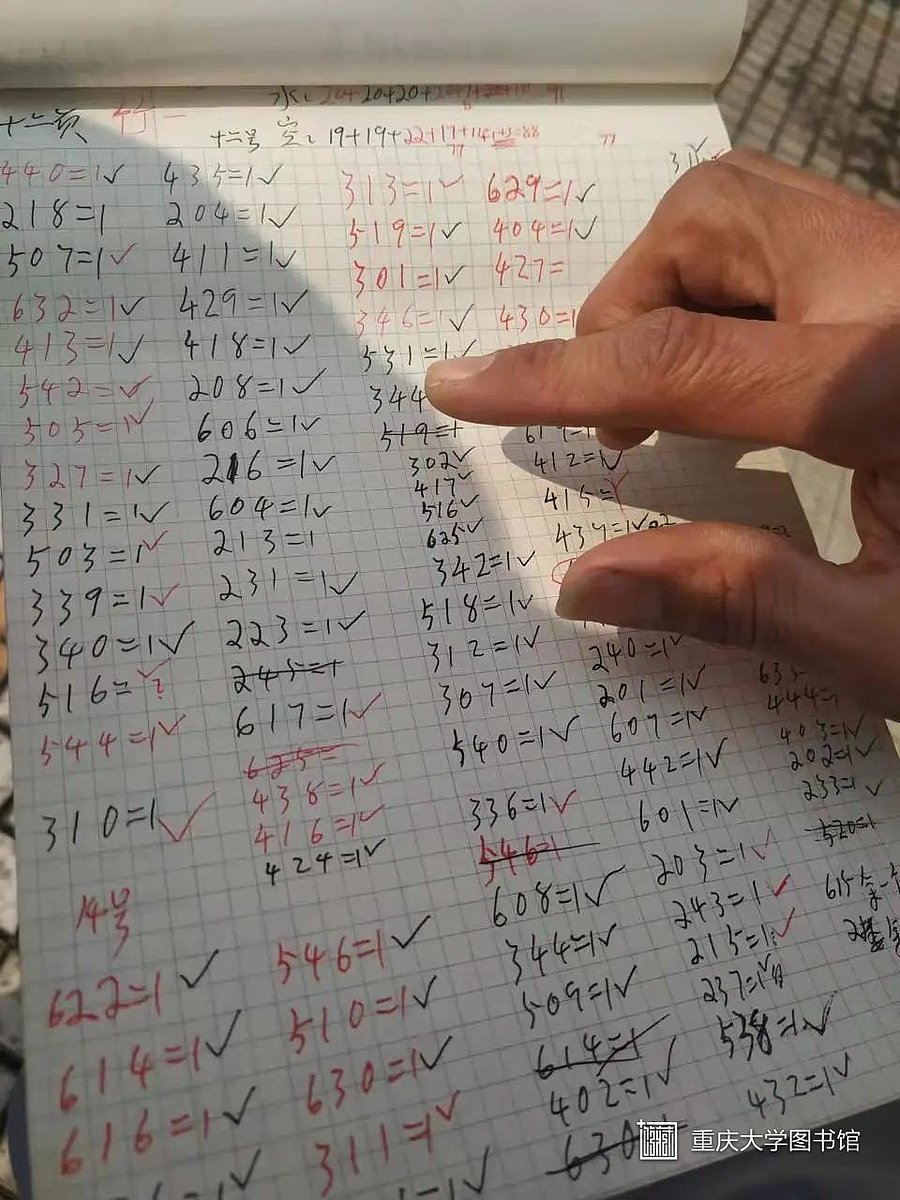 十二页
水:20+20+20+
十二号 空:19+19+22+17+
77
77
440=1✓
218=1
507=1✓
632=1✓
413=1✓
542=✓
305=1✓
327=1✓
331=1✓
503=1✓
339=1✓
340=1✓
516=?
544=1✓
310=1✓
435=1✓
204=1✓
411=1✓
429=1✓
418=1✓
208=1✓
606=1✓
216=1✓
604=1✓
213=1
231=1✓
223=1✓
245=1
617=1✓
625=
438=1✓
416=1✓
424=1✓
313=1✓
519=1✓
301=1✓
346=1✓
531=1✓
344
519=1
302✓
417✓
516✓
625✓
342=1✓
518=1✓
312=1✓
307=1✓
540=1✓
336=1✓
546=1
629=1✓
404=1✓
427=
430=1
412=1✓
415=✓
240=1✓
201=1✓
609=1✓
442=1✓
601=1✓
203=1✓
243=1✓
215=1✓
237=1✓
538=1✓
432=1✓
444=1
403=1✓
202=1✓
233=1✓
520=1
615
14号
622=1✓
614=1✓
616=1✓
546=1✓
510=1✓
630=1✓
311=1✓
608=1✓
344=1✓
509=1✓
614=1
402=1✓
630
重庆大学图书馆